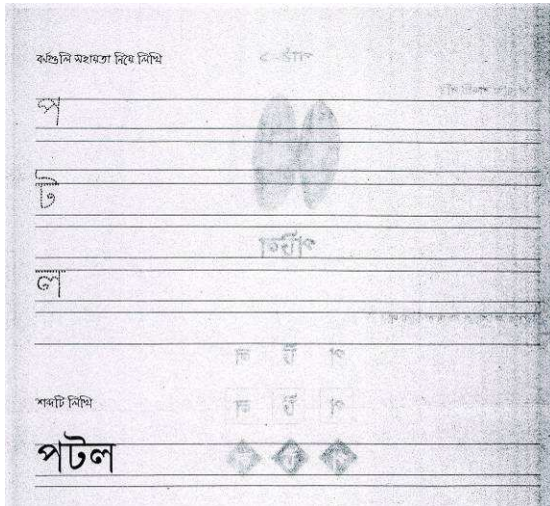 বর্ণগুলি সহায়তা নিয়ে লিখি
প
ট
ল
শব্দটি লিখি
পটল